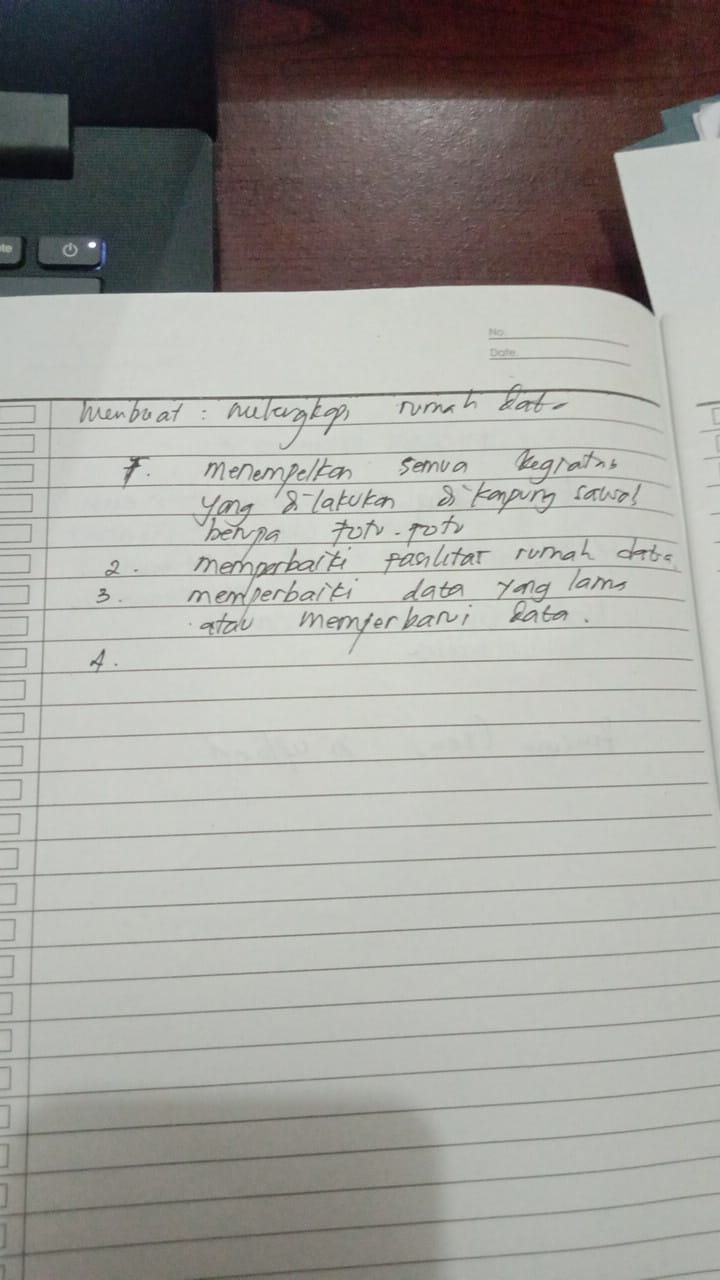 No.
Date.
Menbuat : melengkapi rumah data
1. menempelkan semua kegiatan
yang dilakukan di kampung sawal
berupa foto-foto
2. memperbaiki fasilitas rumah data
3. memperbaiki data yang lama
atau memperbarui data.
4.